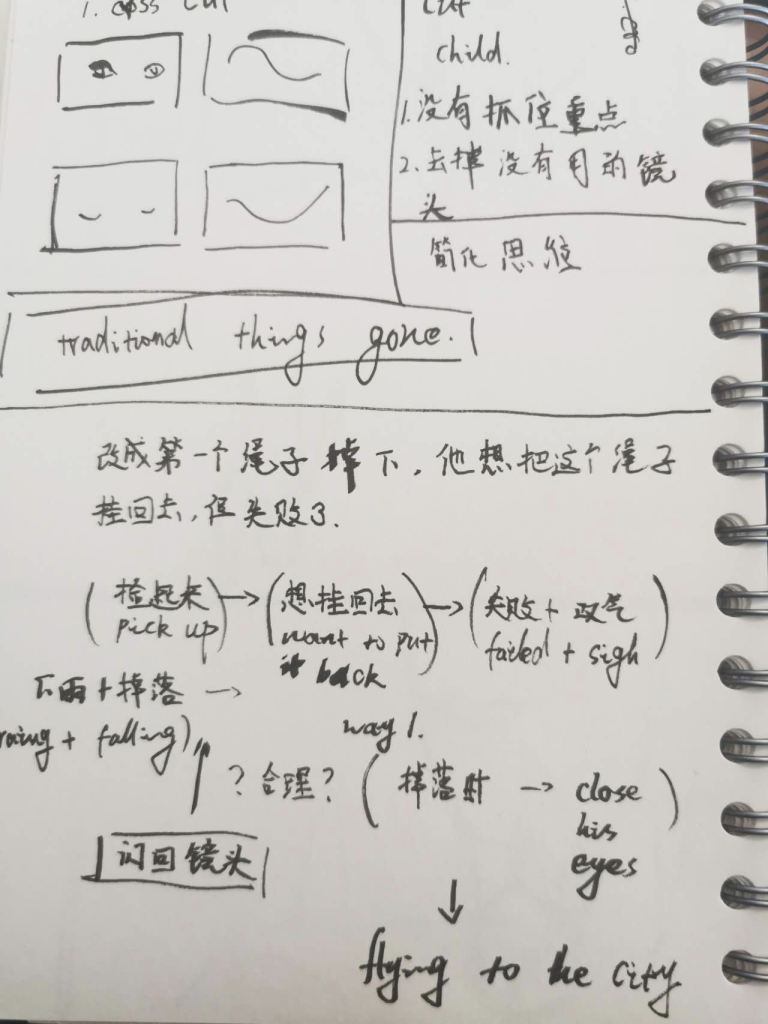 1. coss cut
cut
child.
1.没有抓住重点
2.去掉没有用的镜
头
简化思维
traditional things gone.
改成第一个绳子掉下,他想把这个绳子
挂回去,但失败了.
(捡起来 → (想挂回去 → (失败+叹气
pick up) want to put failed + sigh)
it back)
下雨+掉落 →
raing + falling)
way 1.
?合理? (掉落时 → close
his
eyes)
闪回镜头
↓
flying to the city